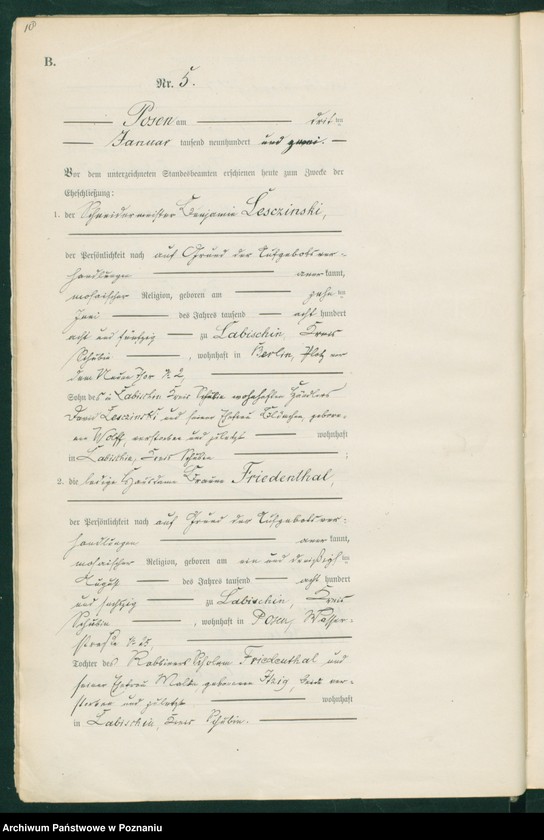 10
B.
Nr. 5.
Posen am dritten
Januar tausend neunhundert und zwei.
Vor dem unterzeichneten Standesbeamten erschienen heute zum Zwecke der
Eheschließung:
1. der Schneidermeister Benjamin Lesczinski,
der Persönlichkeit nach auf Grund der Aufgebotsver-
handlungen anerkannt,
mosaischer Religion, geboren am zehnten
Juni des Jahres tausend acht hundert
acht und fünfzig zu Labischin, Kreis
Schubin, wohnhaft in Berlin, Platz vor
dem Neuen Thor N 2,
Sohn des in Labischin Kreis Schubin wohnhaften Händlers
David Lesczinski und seiner Ehefrau Blümchen, gebore-
nen Wolff, verstorben und zuletzt wohnhaft
in Labischin, Kreis Schubin ;
2. die ledige Hausdame Friedenthal,
der Persönlichkeit nach auf Grund der Aufgebotsver-
handlungen anerkannt,
mosaischer Religion, geboren am ein und dreißigsten
August des Jahres tausend acht hundert
und sechzig zu Labischin, Kreis
Schubin, wohnhaft in Posen, Wasser-
straße N 25,
Tochter des Rabbiners Scholem Friedenthal und
seiner Ehefrau Malke geborenen Itzig, beide ver-
storben und zuletzt wohnhaft
in Labischin, Kreis Schubin.
Archiwum Państwowe w Poznaniu